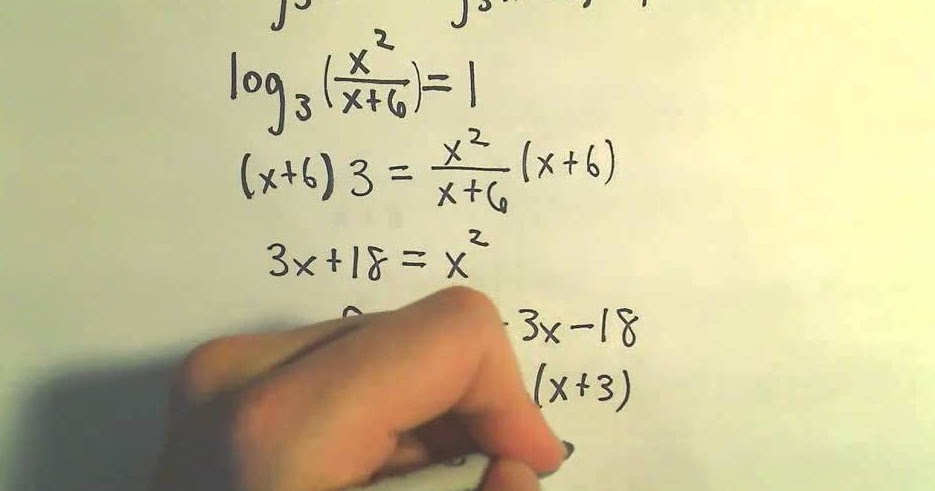 log₃(x²/(x+6)) = 1
(x+6) 3 = x²/(x+6) (x+6)
3x+18 = x²
-3x-18
(x+3)